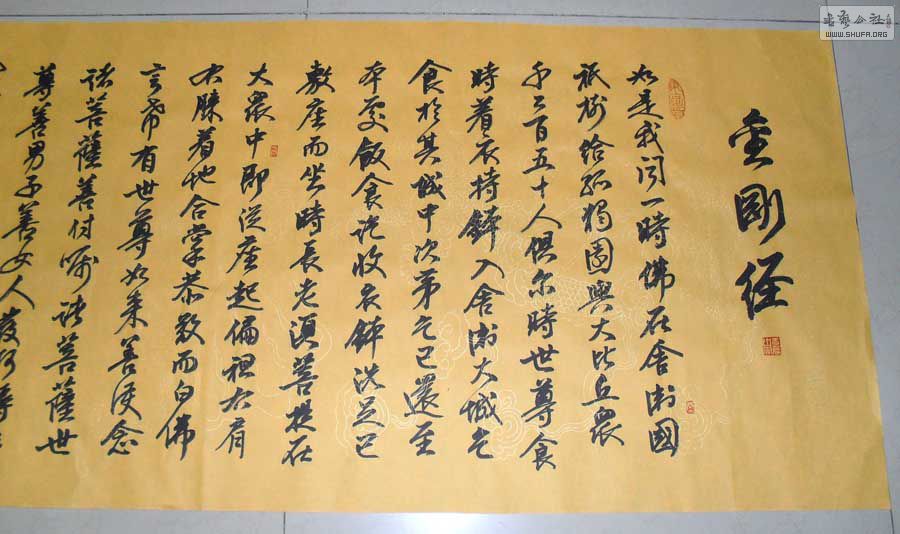 金剛经
如是我闻一時佛在舍衛國
祇树给孤獨園與大比丘衆
千二百五十人俱尔時世尊食
時着衣持鉢入舍衛大城乞
食於其城中次第乞已還至
本處飯食讫收衣鉢洗足已
敷座而坐時長老湏菩提在
大衆中即從座起偏袒右肩
右膝着地合掌恭敬而白佛
言希有世尊如来善護念
诸菩薩善付嘱诸菩薩世
尊善男子善女人發阿
書藝公社
WWW.SHUFA.ORG